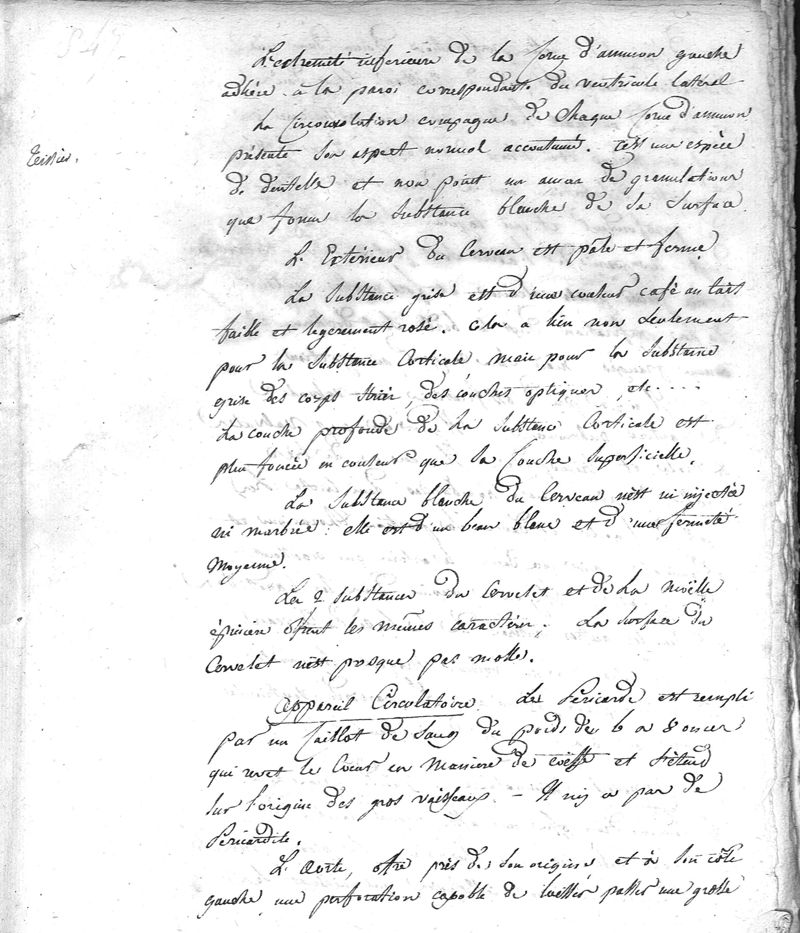 L'extremité inférieure de la corne d'ammon gauche
adhère à la paroi correspondante du ventricule latéral
La Circonvolution compagne de Chaque Corne d'ammon
présente son aspect normal accoutumé. C'est une espèce
Teissier.
de dentelle et non point un amas de granulations
que forme la substance blanche de sa surface.
L'Extérieur du Cerveau est pâle et ferme.
La substance grise est d'une couleur café au lait
faible et legerement rosé. Cela a lieu non seulement
pour la substance Corticale mais pour la substance
grise des corps striés, des couches optiques, etc....
La couche profonde de la substance Corticale est
plus foncée en couleur que la Couche superficielle.
La substance blanche du Cerveau n'est ni injectée
ni marbrée : elle est d'un beau blanc et d'une fermeté
moyenne.
Les 2 substances du Cervelet et de la moëlle
épinière offrent les mêmes caractères. La surface du
Cervelet n'est presque pas molle.
appareil Circulatoire. Le Péricarde est rempli
par un Caillot de Sang du poids de 6 à 8 onces
qui revet le Coeur en Maniere de coëffe et s'étend
sur l'origine des gros vaisseaux. - Il n'y a pas de
Péricardite.
L'Aorte, offre près de son origine et à son côté
gauche une perforation capable de laisser passer une grosse